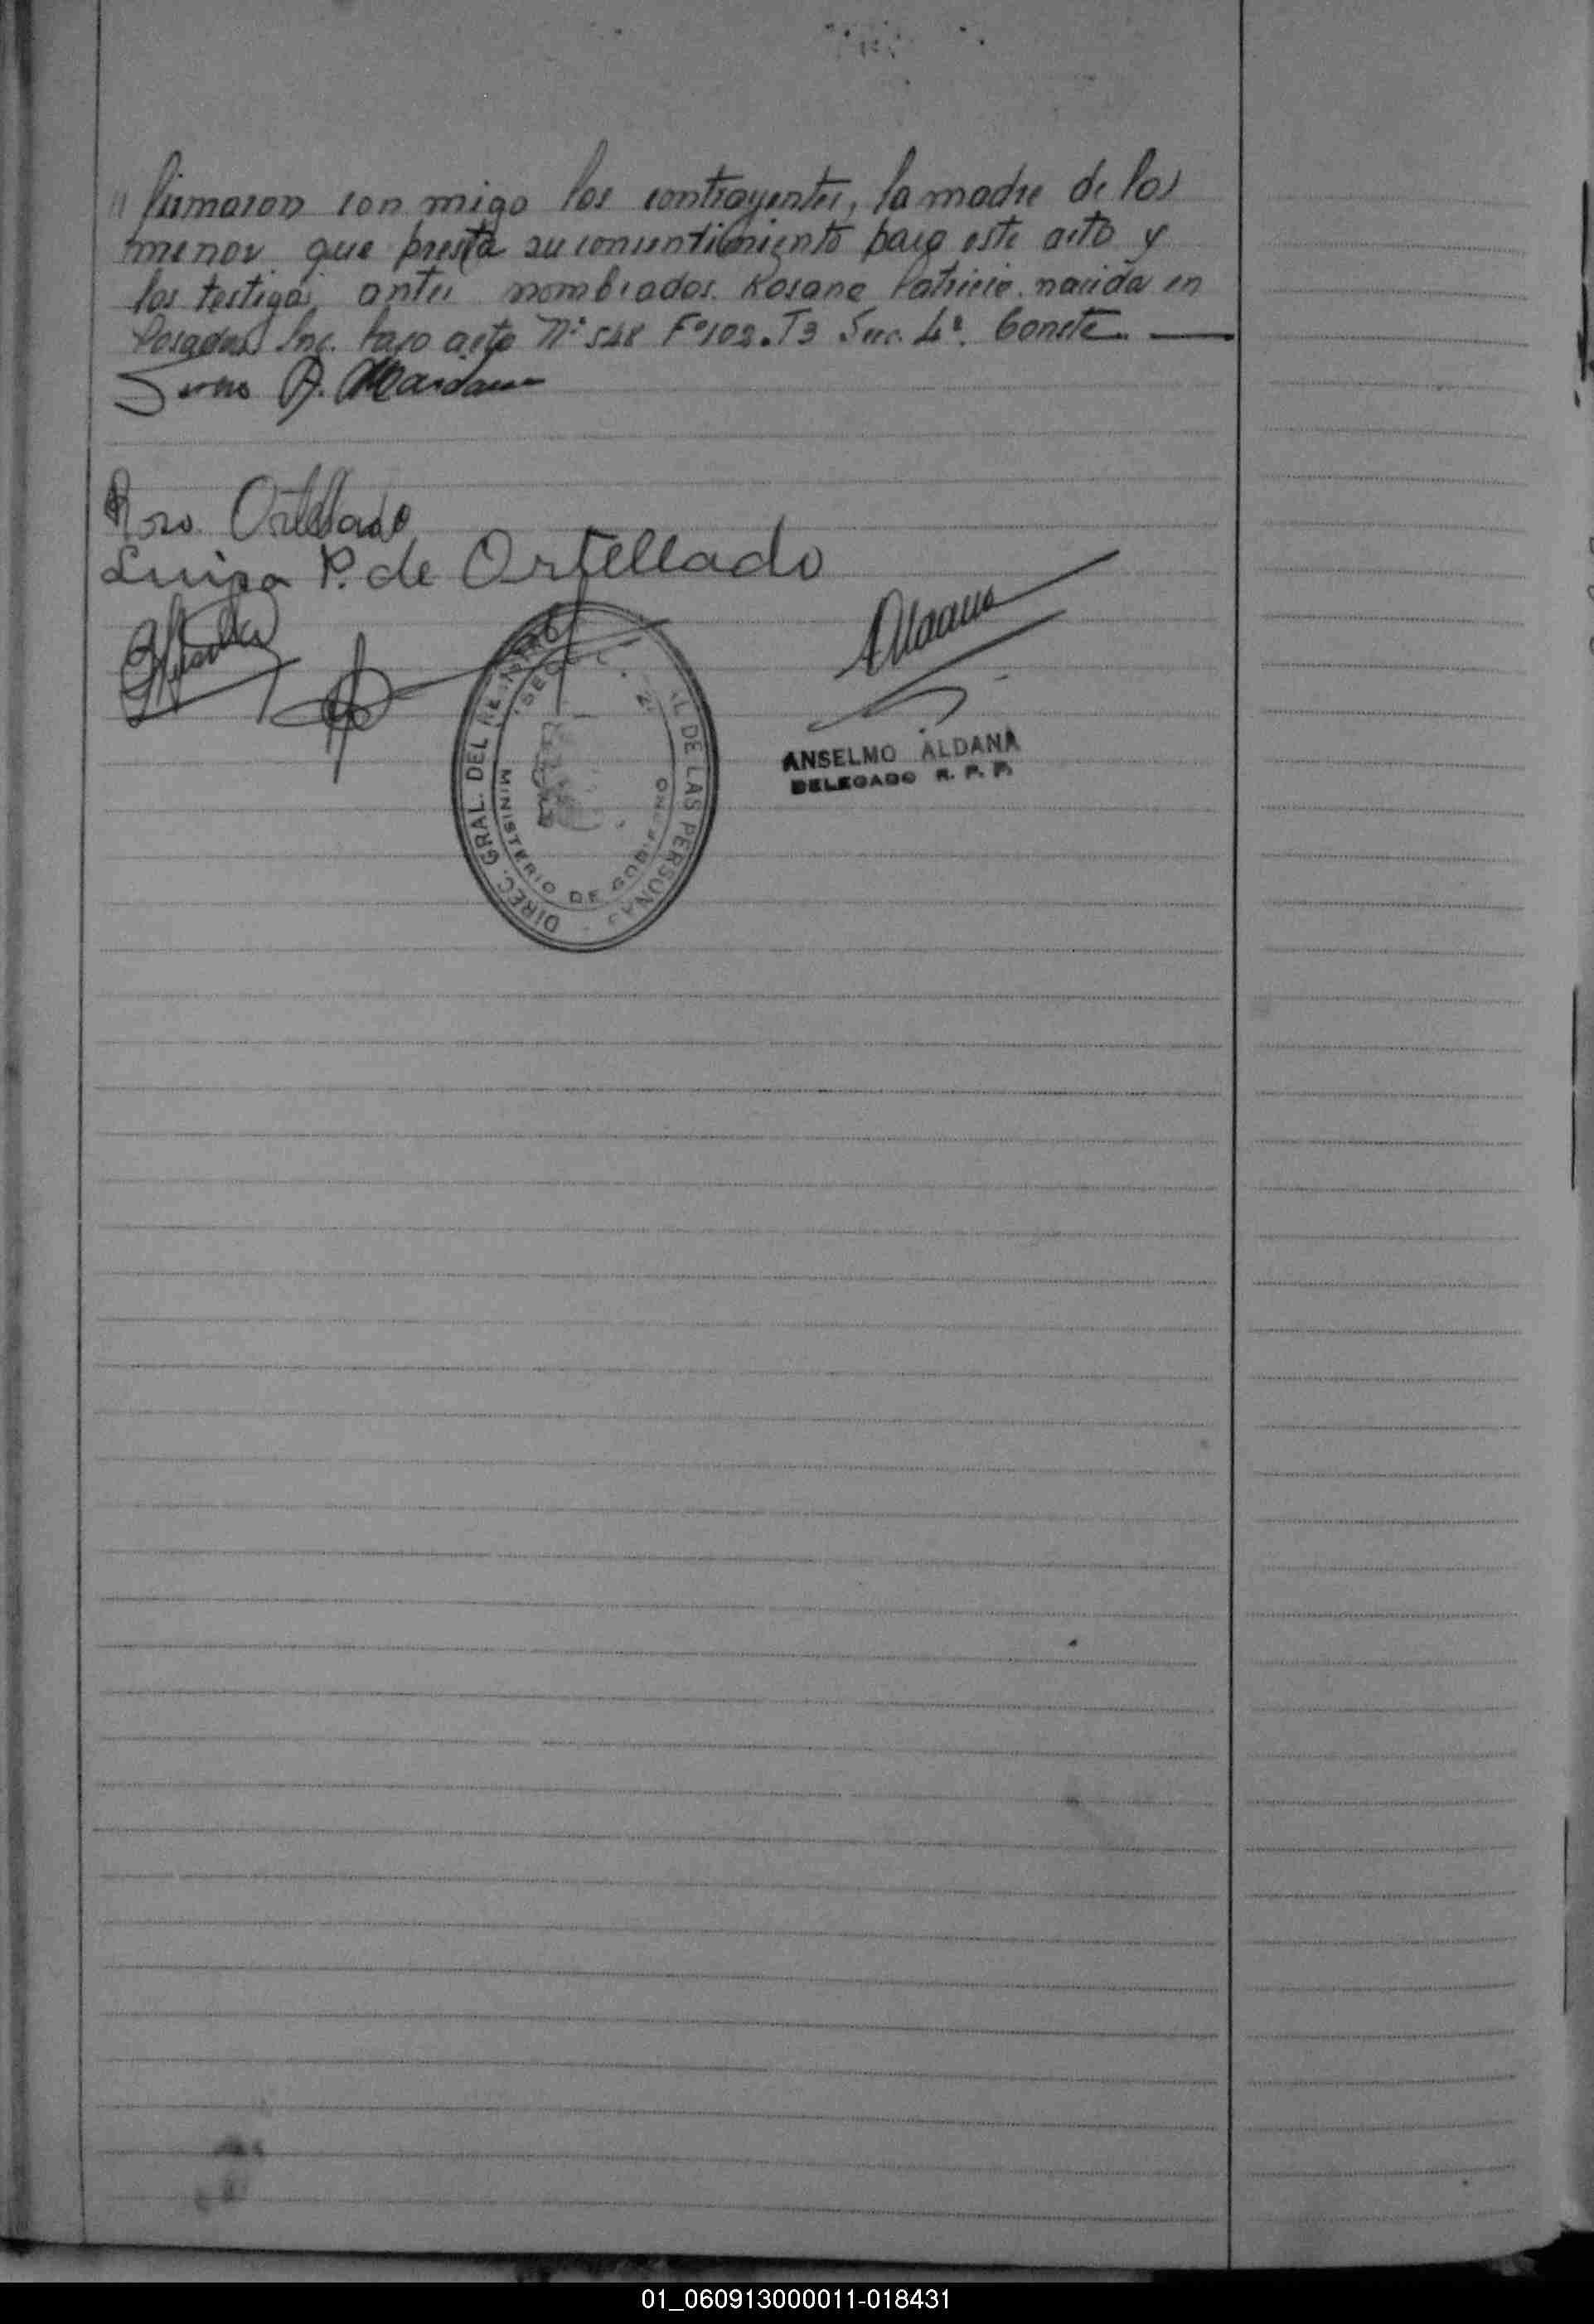 " firmaron con migo los contrayentes, la madre de los
menor que presta su consentimiento para este acto y
los testigos antes nombrados. Rosana Patricia. nacida en
Posadas Insc. bajo acta Nº 548 Fº102. T3 Secc. 4ª. Conste.
Rosa Ortellado
Luisa P. de Ortellado
Aldana
DIREC. GRAL. DEL REGISTRO
AL DE LAS PERSONAS
MINISTERIO DE GOBIERNO
ANSELMO ALDANA
DELEGADO R. P. P.
01_060913000011-018431